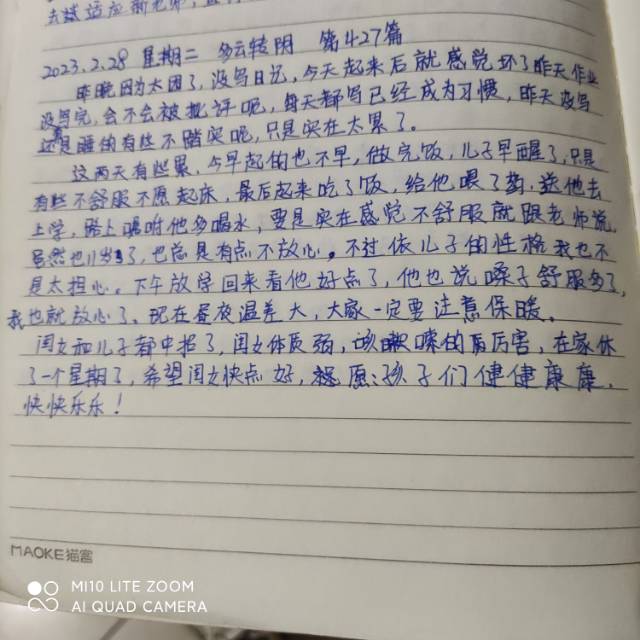 去试适应新老师,
2023.2.28 星期二 多云转阴 第427篇
昨晚因为太困了,没写日记,今天起来后就感觉坏了昨天作业
没写完,会不会被批评呢,每天都写已经成为习惯,昨天没写
还是睡的有些不踏实呢,只是实在太累了。
这两天有些累,今早起的也不早,做完饭,儿子早醒了,只是
有些不舒服不愿起床,最后起来吃了饭,给他喂了药,送他去
上学,路上嘱咐他多喝水,要是实在感觉不舒服就跟老师说
虽然也11岁了,也总是有点不放心。不过依儿子的性格我也不
是太担心。下午放学回来看他好点了,他也说嗓子舒服多了,
我也就放心了。现在昼夜温差大,大家一定要注意保暖。
闺女和儿子都中招了,闺女体质弱,咳嗽的厉害,在家休
了一个星期了,希望闺女快点好,祝愿:孩子们健健康康,
快快乐乐!
MAOKE猫客
MI10 LITE ZOOM
AI QUAD CAMERA